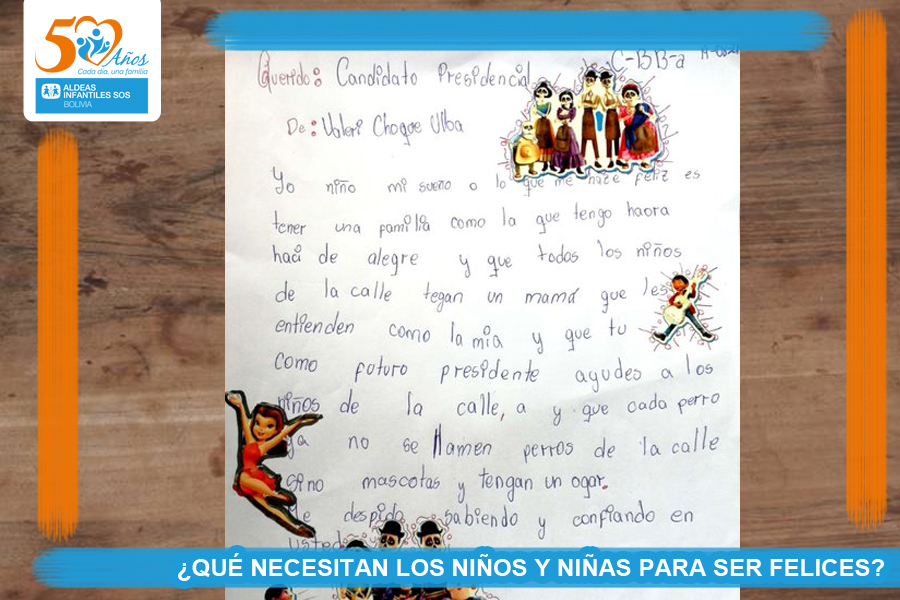 50 Años
Cada día, una familia
ALDEAS
INFANTILES SOS
BOLIVIA
C-BB-a
Querido: Candidato Presidencial
De: Valeri Choque Ulba
Yo niño mi sueño o lo que me hace feliz es
tener una familia como la que tengo haora
haci de alegre y que todos los niños
de la calle tegan un mamá que les
entienden como la mia y que tu
como futuro presidente ayudes a los
niños de la calle, a y que cada perro
ya no se llamen perros de la calle
sino mascotas y tengan un ogar.
Me despido sabiendo y confiando en
usted
¿QUÉ NECESITAN LOS NIÑOS Y NIÑAS PARA SER FELICES?